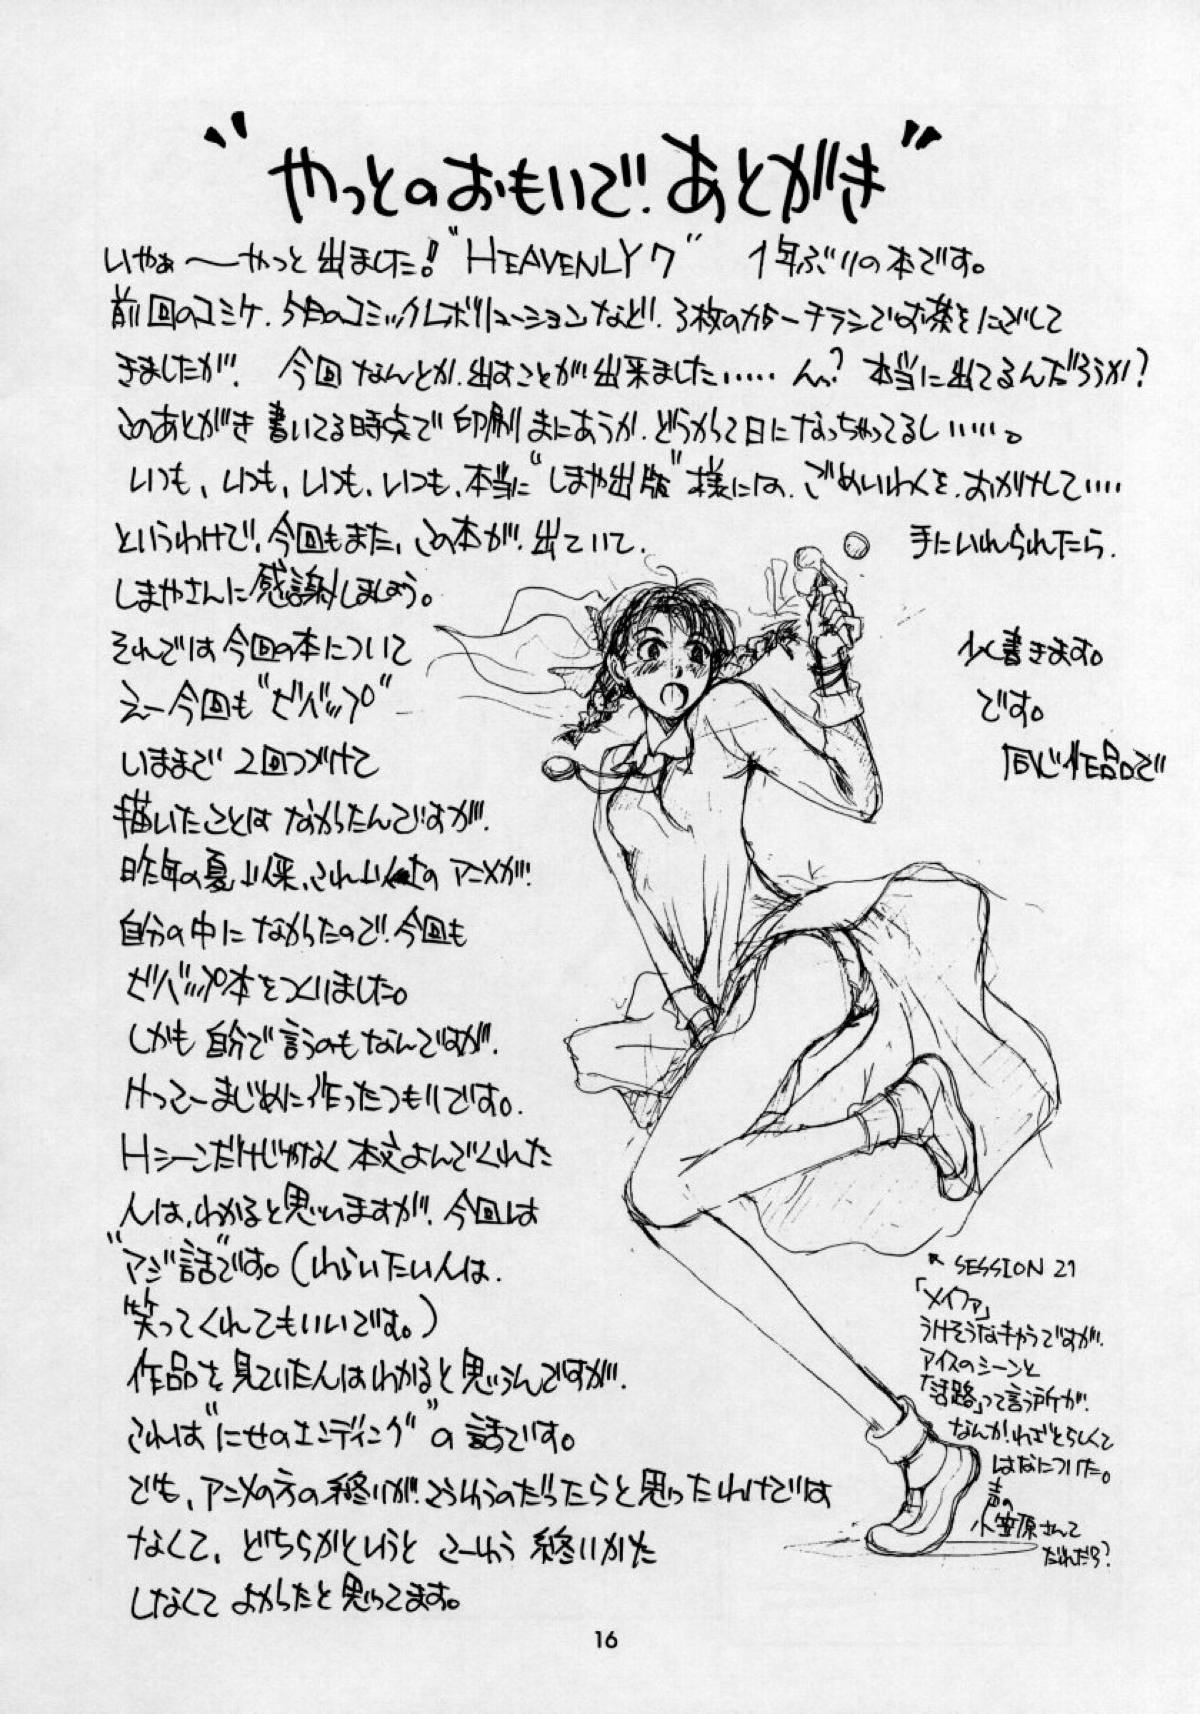 "やっとのおもいで!あとがき"
いやぁ〜やっと出ました!"HEAVENLY7" 1年ぶりの本です。
前回のコミケ、5月のコミックレボリューションなど、3枚のカラーチラシでお茶をにごして
きましたが、今回なんとか、出すことが出来ました……んっ?本当に出てるんだろうか?
このあとがき書いてる時点で印刷まにあうか、どうかって日になっちゃってるし……。
いつも、いつも、いつも、いつも、本当に"しまや出版"様には、ごめいわくを、おかけして……
というわけで、今回もまた、この本が、出ていて、手にいれられたら、
しまやさんに感謝しましょう。
それでは今回の本について 少く書きます。
えー今回も"ビバップ" です。
いままで2回つづけて 同じ作品で
描いたことはなかったんですが、
昨年の夏以来、これ以上のアニメが、
自分の中になかったので、今回も
ビバップ本をつくりました。
しかも自分で言うのもなんですが、
けってーまじめに作ったつもりです。
Hシーンだけじゃなく本文よんでくれた
人は、わかると思いますが、今回は
"マジ話"です。(わらいたい人は、
笑ってくれてもいいです。)
作品を見ていた人はわかると思うんですが、
これは"にせのエンディング"の話です。
でも、アニメの方の終りが、こうゆうのだったらと思ったわけでは
なくて、どちらかというとこーゆう終りかた
しなくてよかったと思ってます。
SESSION 21
「メイファ」
うけそうなキャラですが、
アイスのシーンと
「活路」って言う所が、
なんか、わざとらしくて
はなについた。
声の
小笠原さんて
だれだろ?
16